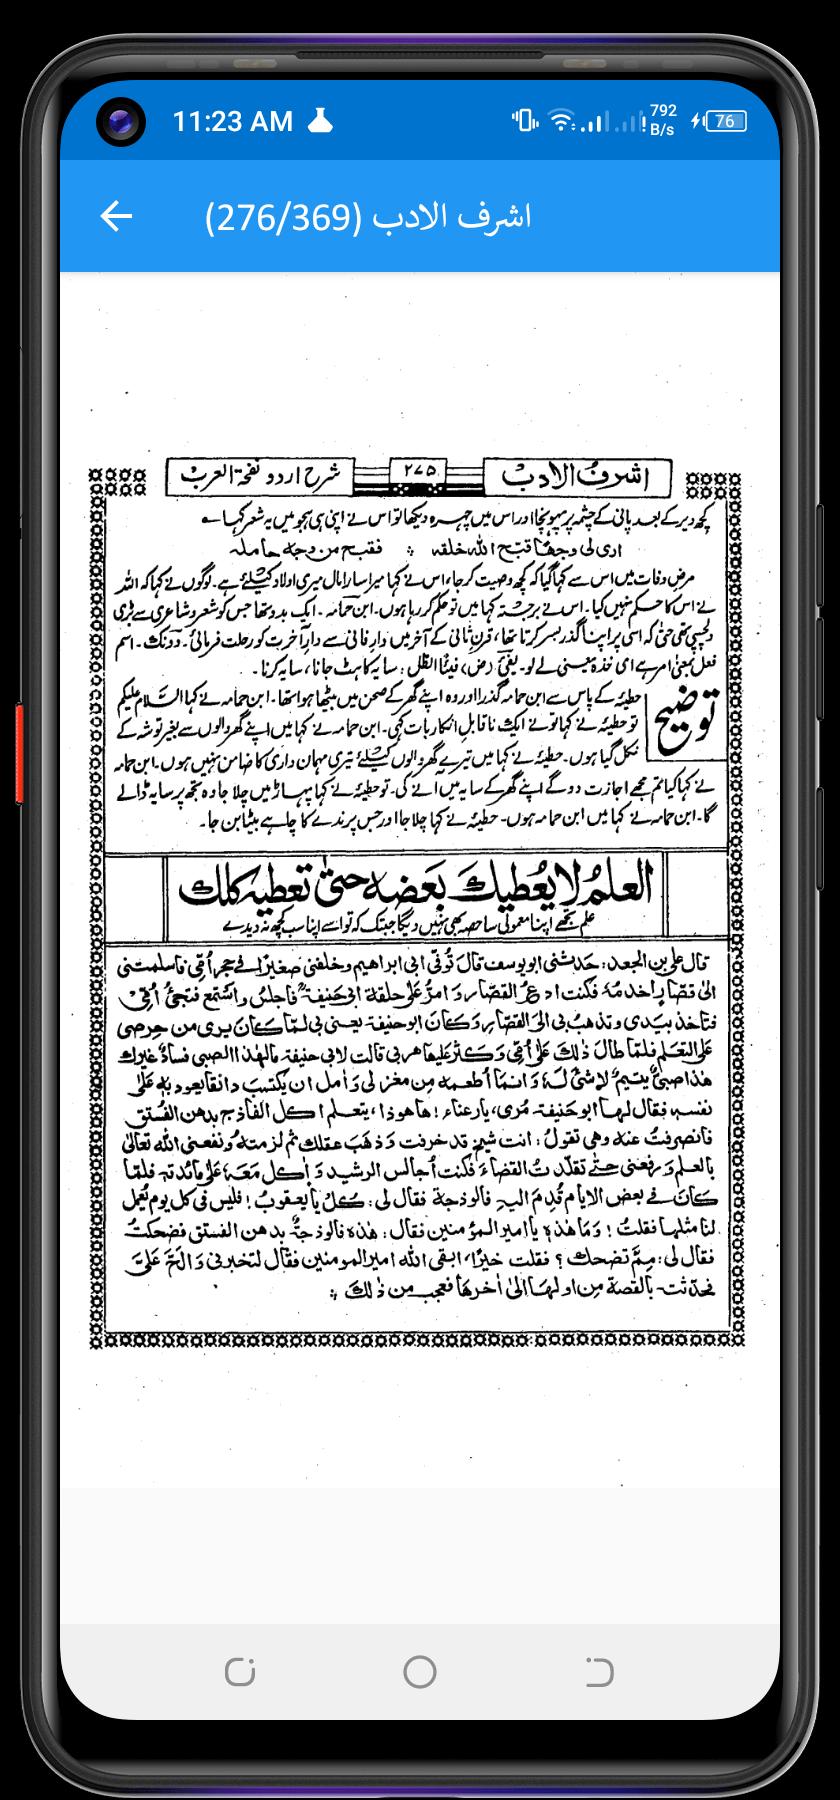 11:23 AM
792
B/s
76
اشرف الادب (276/369)
اشرف الادب
۲۷۵
شرح اردو نفحۃ العرب
کچھ دیر کے بعد پانی کے چشمہ پر پہونچا اور اس میں چہرہ دیکھا تو اس نے اپنی ہی ہجو میں یہ شعر کہا۔
ارى لى وجهًا قبّح الله خلقه ؛ فقبح من وجه حامله
مرض وفات میں اس سے کہا گیا کہ کچھ وصیت کر جا، اس نے کہا میرا سارا مال میری اولاد کیلئے ہے۔ لوگوں نے کہا کہ اللہ
نے اس کا حکم نہیں کیا۔ اس نے برجستہ کہا میں تو حکم کر رہا ہوں۔ ابن حمامہ۔ ایک بدو تھا جس کو شعر و شاعری سے بڑی
دلچسپی تھی حتیٰ کہ اسی پر اپنا گذر بسر کرتا تھا، قرن ثانی کے آخر میں دار فانی سے دار آخرت کو رحلت فرمائی۔ دونک۔ اسم
فعل بمعنی امر ہے ای خذہ بمعنی لے لو۔ یفئ (ض) فیئًا الظل: سایہ کا ہٹ جانا، سایہ کرنا۔
توضیح
حطیئہ کے پاس سے ابن حمامہ گذرا اور وہ اپنے گھر کے صحن میں بیٹھا ہوا تھا۔ ابن حمامہ نے کہا السلام علیکم
تو حطیئہ نے کہا تو نے ایک ناقابل انکار بات کہی۔ ابن حمامہ نے کہا میں اپنے گھر والوں سے بغیر توشہ کے
نکل گیا ہوں۔ حطیئہ نے کہا میں تیرے گھر والوں کیلئے تیری مہمان داری کا ضامن نہیں ہوں۔ ابن حمامہ
نے کہا کیا تم مجھے اجازت دو گے اپنے گھر کے سایہ میں آنے کی۔ تو حطیئہ نے کہا پہاڑ میں چلا جا وہ تجھ پر سایہ ڈالے
گا۔ ابن حمامہ نے کہا میں ابن حمامہ ہوں۔ حطیئہ نے کہا چلا جا اور جس پرندے کا چاہے بیٹا بن جا۔
العلمُ لا يُعطيكَ بَعضه حتىٰ تعطيه كلك
علم تجھے اپنا معمولی سا حصہ بھی نہیں دیگا جب تک کہ تو اسے اپنا سب کچھ نہ دیدے
قال على بن الجعد: حَدثنى ابو يوسف قال تُوفّى ابى ابراهيم وخلفنى صغيرًا فى حجر اُمّى فاسلمتنى
الى قصّار اَخدمُهٗ فكنت ادعُ القصّار وَامرُّ على حلقة ابى حنيفةؒ فاجلس واستمع فتجئُ اُمّى
فتاخذ بيدى وتذهب بى الى القصّار، وَكَانَ ابو حنيفة يعنى بى لما كان يرى من حِرصى
على التعلم فلمّا طال ذلك على اُمّى وَكثر عليها هربى قالت لابى حنيفة ما لهٰذا الصبى فسادٌ غيرك
هذا صبىٌ يتيمٌ لا شئ لهٗ وَانما اُطعمه من مغزلى وَاٰمل ان يكتسب دانقا يعود به على
نفسه فقال لها ابو حنيفة مُرى، يا رعناء! ها هو ذا، يتعلم اكل الفالوذج بدهن الفُستق
فانصرفتُ عنه وهى تقولُ: انت شيخ قد خرفت وَذهب عقلك ثم لزمتهٗ ونفعنى الله تعالىٰ
بالعلم وَرفعنى حتّٰى تقلّدتُ القضاءَ فكنت اُجالس الرشيد وَاٰكل معهٗ على مائدته فلمّا
كان فى بعض الايام قُدِمَ اليه فالوذجة فقال لى: كُلْ يا يعقوبُ! فليس فى كل يوم يُعمل
لنا مثلها فقلتُ! وَمَا هٰذه يا امير المؤمنين فقال: هٰذه فالوذجةٌ بدهن الفستق فضحكتُ
فقال لى: مِمّ تضحك؟ فقلت خيرًا، ابقى الله امير المومنين فقال لتخبرنى وَالحّ علىّ
فحدّثته بالقصة من اولها الىٰ اٰخرها فعجب من ذٰلك ؛